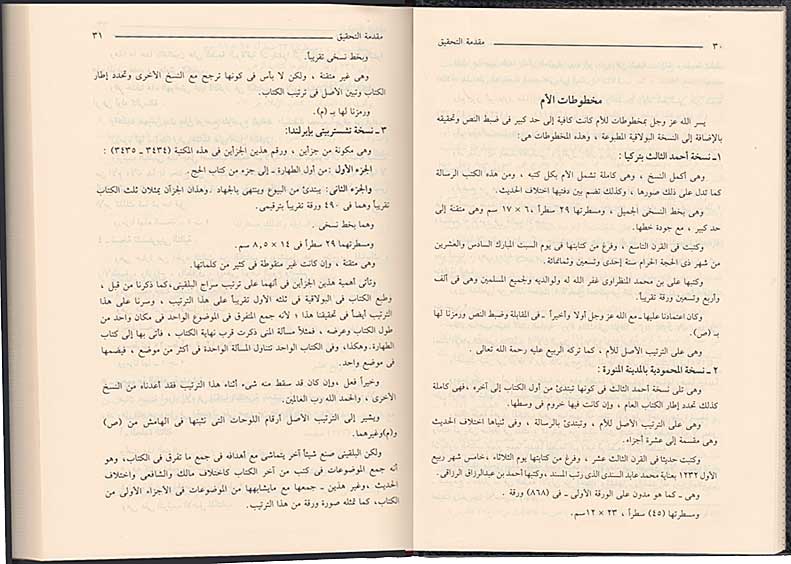 ٣٠ مقدمة التحقيق
مخطوطات الأم
يسر الله عز وجل بمخطوطات للأم كانت كافية إلى حد كبير فى ضبط النص وتحقيقه
بالإضافة إلى النسخة البولاقية المطبوعة ، وهذه المخطوطات هى:
١ ـ نسخة أحمد الثالث بتركيا :
وهى أكمل النسخ ، وهى كاملة تشمل الأم بكل كتبه ، ومن هذه الكتب الرسالة
كما تدل على ذلك صورها ، وكذلك تضم بين دفتيها اختلاف الحديث.
وهى بخط النسخى الجميل ، ومسطرتها ٢٩ سطراً ، ٦ × ١٧ سم وهى متقنة إلى
حد كبير ، مع جودة خطها.
وكتبت فى القرن التاسع ، وفرغ من كتابتها فى يوم السبت المبارك السادس والعشرين
من شهر ذى الحجة الحرام سنة إحدى وتسعين وثمانمائة.
وكتبها على بن محمد المنظراوى غفر الله له ولوالديه ولجميع المسلمين وهى فى ألف
وأربع وتسعين ورقة تقريباً.
وكان اعتمادنا عليها ـ مع الله عز وجل أولا وأخيراً ـ فى المقابلة وضبط النص ورمزنا لها
بـ (ص).
وهى على الترتيب الأصل للأم ، كما تركه الربيع عليه رحمة الله تعالى .
٢ ـ نسخة المحمودية بالمدينة المنورة :
وهى تلى نسخة أحمد الثالث فى كونها تبتدئ من أول الكتاب إلى آخره ،فهى كاملة
كذلك تحدد إطار الكتاب العام ، وإن كانت فيها خروم فى وسطها.
وهى على الترتيب الأصل للأم ، وتبتدئ بالرسالة ، وفى ثناياها اختلاف الحديث
وهى مقسمة إلى عشرة أجزاء.
وكتبت حديثا فى القرن الثالث عشر ، وفرغ من كتابتها يوم الثلاثاء ،خامس شهر ربيع
الأول ١٢٣٢ بعناية محمد عابد السندى الذى رتب المسند ،وكتبها أحمد بن عبدالرزاق الرزاقى.
وهى ـ كما هو مدون على الورقة الأولى ـ فى (٨٦٨) ورقة .
ومسطرتها (٤٥) سطراً ، ٢٣ × ١٢سم.
مقدمة التحقيق ٣١
وبخط نسخى تقريباً.
وهى غير متقنة ، ولكن لا بأس فى كونها ترجح مع النسخ الأخرى وتحدد إطار
الكتاب وتبين الأصل فى ترتيب الكتاب.
ورمزنا لها بـ (م).
٣ ـ نسخة تشستربيتى بإيرلندا:
وهى مكونة من جزأين ، ورقم هذين الجزأين فى هذه المكتبة (٣٤٣٤ ـ ٣٤٣٥) :
الجزء الأول :من أول الطهارة ـ إلى جزء من كتاب الحج.
والجزء الثانى: يبتدئ من البيوع وينتهى بالجهاد .وهذان الجزآن يمثلان ثلث الكتاب
تقريباً وهما فى ٤٩٠ ورقة تقريباً بترقيمى.
وهما بخط نسخى .
ومسطرتهما ٢٩ سطراً فى ١٤ × ٨,٥ سم.
وهى متقنة ، وإن كانت غير منقوطة فى كثير من كلماتها.
وتأتى أهمية هذين الجزأين فى أنهما على ترتيب سراج البلقينى،كما ذكرنا من قبل ،
وطبع الكتاب فى البولاقية فى ثلك الأول تقريباً على هذا الترتيب ، وسرنا على هذا
الترتيب أيضاً فى تحقيقنا هذا ؛ لأنه جمع المتفرق فى الموضوع الواحد فى مكان واحد من
طول الكتاب وعرضه ، فمثلاً مسألة المنى ذكرت قرب نهاية الكتاب ، فأتى بها إلى كتاب
الطهارة.وهكذا، وفى الكتاب الواحد تتناول المسألة الواحدة فى أكثر من موضع ، فيضمها
فى موضع واحد.
وخيراً فعل ،وإن كان قد سقط منه شىء أثناء هذا الترتيب فقد أخذناه من النسخ
الأخرى ، والحمد لله رب العالمين.
ويشير إلى الترتيب الأصل أرقام اللوحات التى نثبتها فى الهامش من (ص)
و(م)وغيرهما.
ولكن البلقينى صنع شيئاً آخر يتماشى مع أهدافه فى جمع ما تفرق فى الكتاب، وهو
أنه جمع الموضوعات فى كتب من آخر الكتاب كاختلاف مالك والشافعى واختلاف
الحديث ،وغير هذين ـ جمعها مع مايشابهها من الموضوعات فى الأجزاء الأولى من
الكتاب، كما تمثله صورة ورقة من هذا الترتيب.